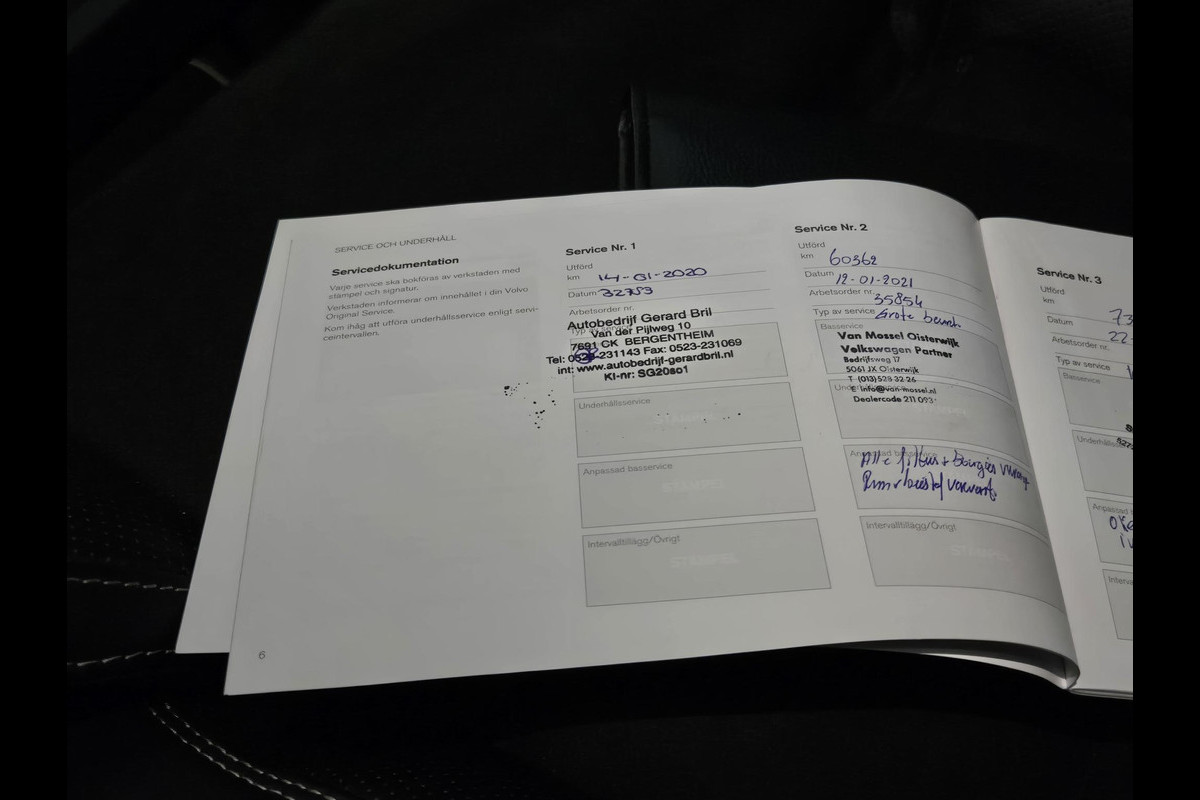 SERVICE OCH UNDERHÅLL
Servicedokumentation
Varje service ska bokföras av verkstaden med
stämpel och signatur.
Verkstaden informerar om innehållet i din Volvo
Original Service.
Kom ihåg att utföra underhållsservice enligt servi-
ceintervallen.
6
Service Nr. 1
Utförd
km 14-01-2020
Datum 32753
Arbetsorder nr.
Typ av service
Autobedrijf Gerard Bril
Van der Pijlweg 10
7691 CK BERGENTHEIM
Tel: 0523-231143 Fax: 0523-231069
int: www.autobedrijf-gerardbril.nl
KI-nr: SG20so1
Underhållsservice
STÄMPEL
Anpassad basservice
STÄMPEL
Intervalltillägg/Övrigt
STÄMPEL
Service Nr. 2
Utförd
km 60362
Datum 12-01-2021
Arbetsorder nr. 35854
Typ av service Grote beurt.
Basservice
Van Mossel Oisterwijk
Volkswagen Partner
Bedrijfsweg 17
5061 JX Oisterwijk
T (013) 523 32 26
E info@van-mossel.nl
Dealercode 211 093
Alle filters + bougies
Remvloeistof ververst
Intervalltillägg/Övrigt
STÄMPEL
Service Nr. 3
Utförd
km 73
Datum 22-
Arbetsorder nr.
Typ av service
Basservice
Underhålls
Anpassad
Interva